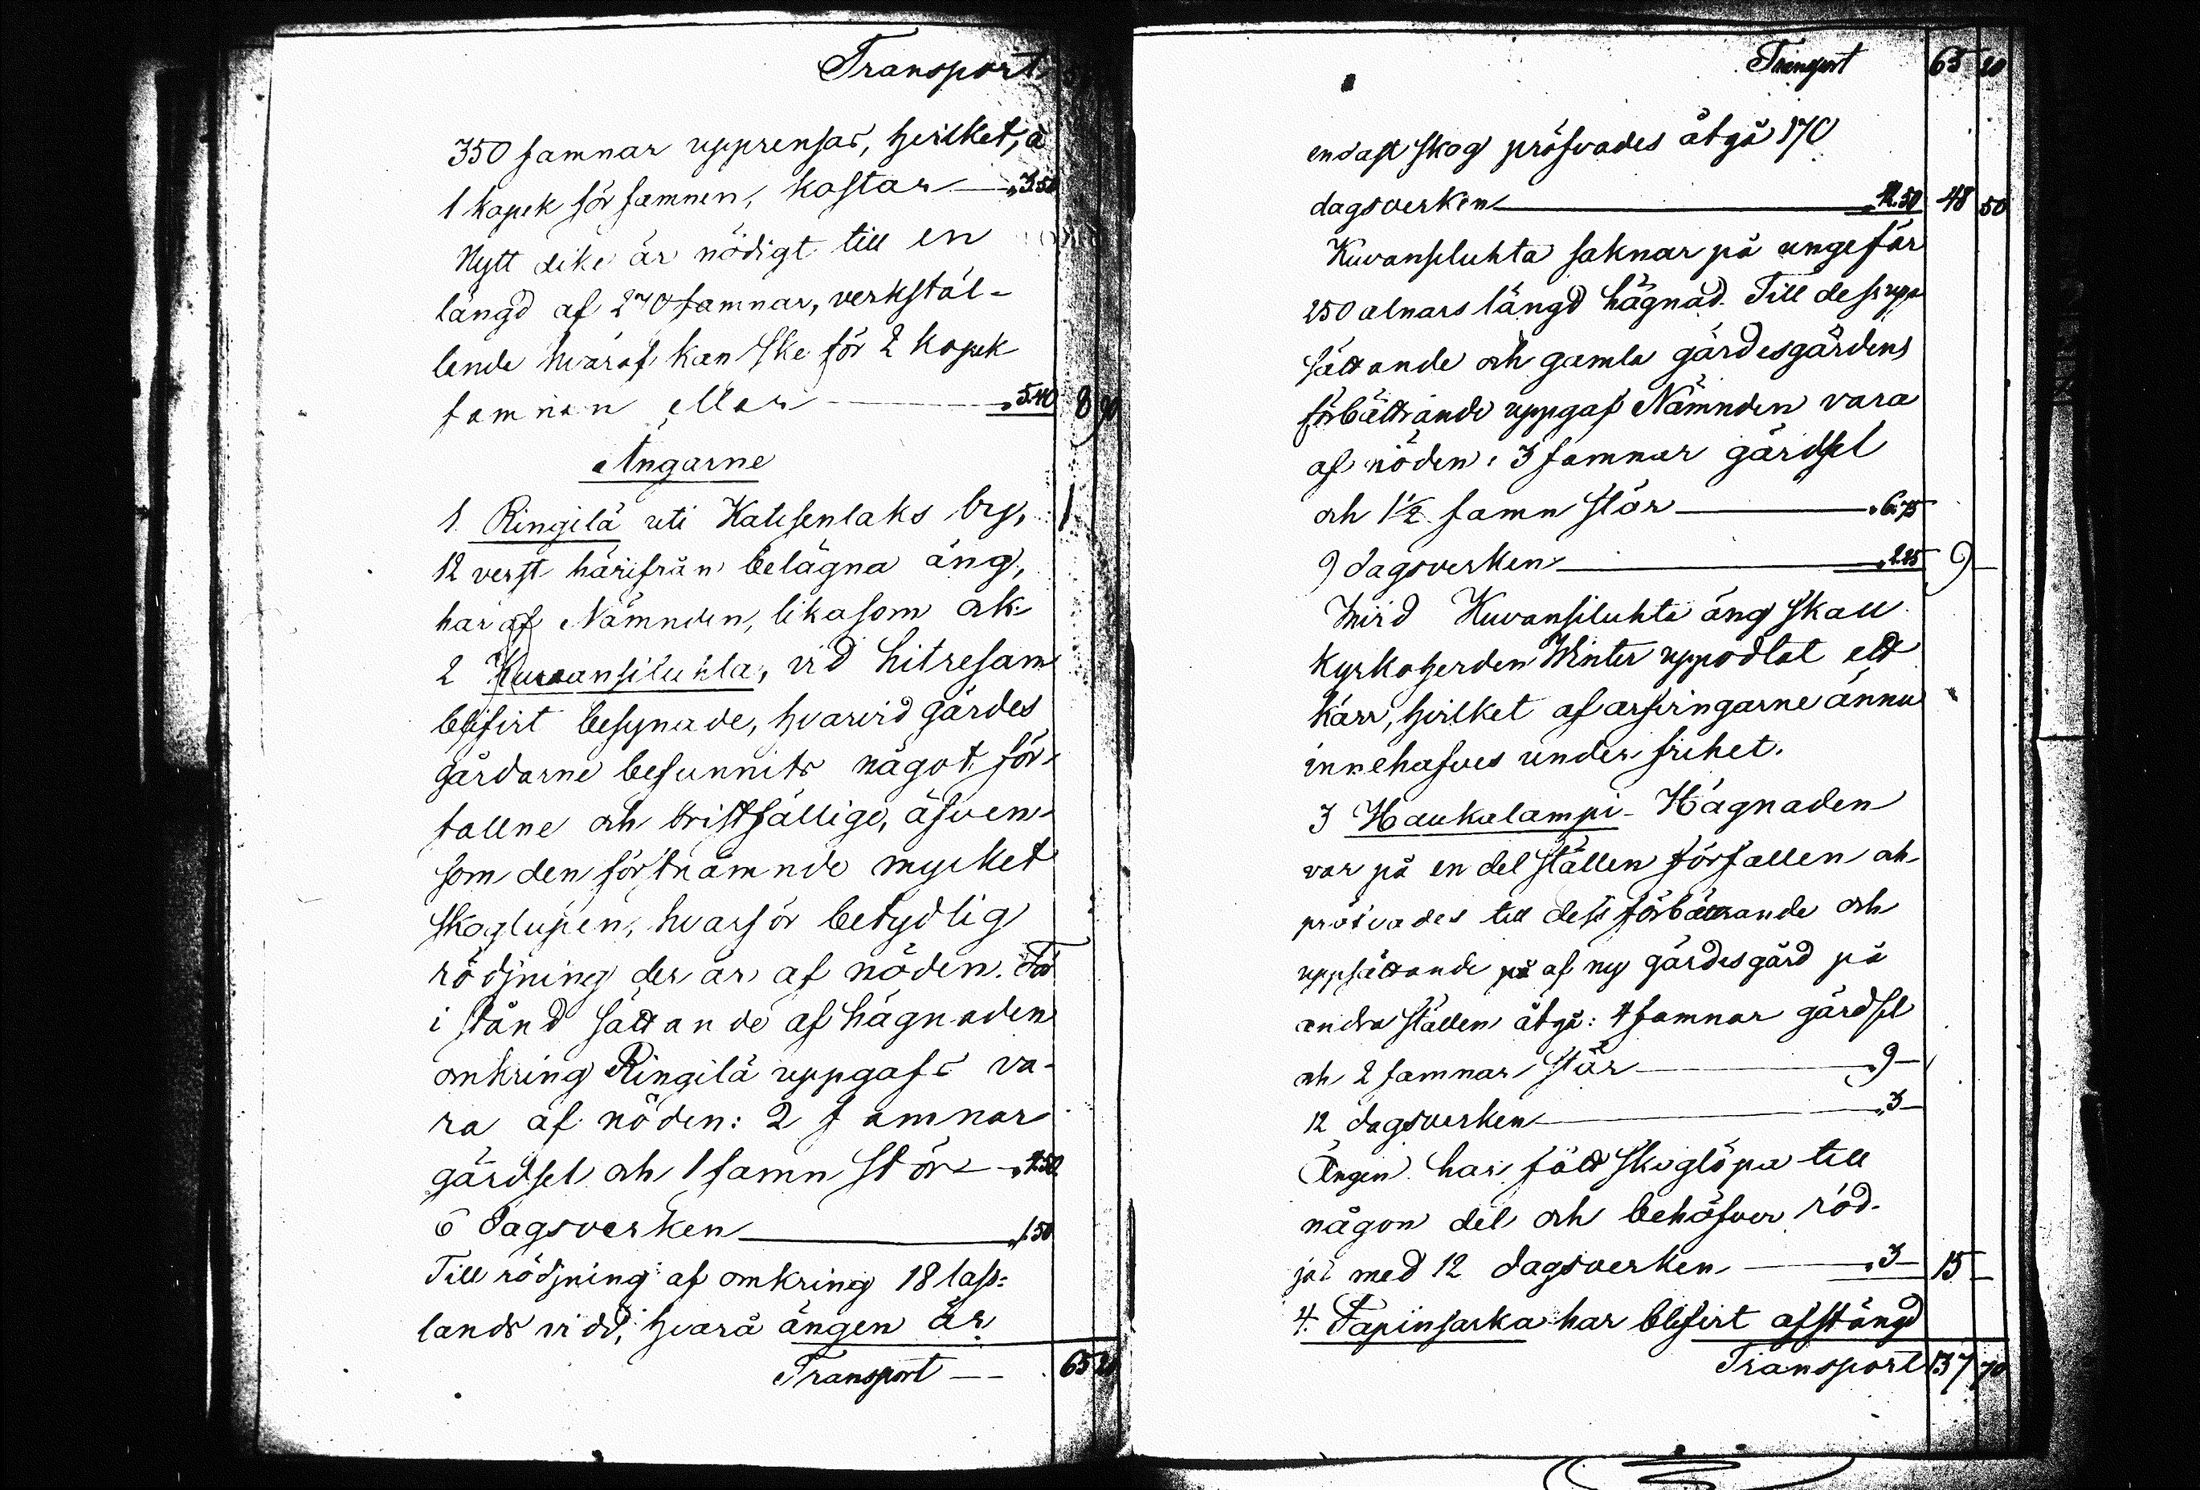 Transport
350 famnar upprensas, hvilket, à
1 kopek för famnen, kostar — „ 3.50
Nytt dike är nödigt till en
längd af 270 famnar, verkstäl-
lende hvaraf kan ske för 2 kopek
famnen eller — „ 5.40 8 90
Ängarne
1 Ringilä uti Katisenlaks by,
12 verst härifrån belägna äng,
har af Nämnden, likasom ock
2 Kuvansiluhta, vid hitresam
blifvit besynade, hvarvid gärdes
gårdarne befunnits något för-
fallne och bristfällige, äfven-
som den förstnämnde mycket
skoglupen, hvarför betydlig
rödjning der är af nöden. Till
i stånd sättande af hägnaden
omkring Ringilä uppgafs va-
ra af nöden: 2 famnar
gärdsel och 1 famn stör — „ 4.50
6 dagsverken — „ 1.50
Till rödjning af omkring 18 lass-
lands vidd, hvarå ängen är
Transport — — 65 20
Transport 65 20
endast skog pröfvades åtgå 170
dagsverken — „ 42.50 48 50
Kuvansiluhta saknar på ungefär
250 alnars längd hägnad. Till dess upp
sättande och gamla gärdesgårdens
förbättrande uppgaf Nämnden vara
af nöden: 3 famnar gärdsel
och 1½ famn stör — „ 6.75
9 dagsverken — „ 2.25 9 —
Invid Kuvansiluhta äng skall
Kyrkoherden Winter uppodlat ett
kärr, hvilket af arfvingarne ännu
innehafves under frihet.
3 Haukalampi - Hägnaden
var på en del ställen förfallen och
pröfvades till dess förbättrande och
uppsättande på af ny gärdesgård på
andra ställen åtgå: 4 famnar gärdsel
och 2 famnar stör — „ 9 —
12 dagsverken — „ 3 —
Ängen har fått skoglöpa till
någon del och behöfver röd-
jas med 12 dagsverken — „ 3 — 15 —
4. Papinsarka har blifvit afstängd
Transport 137 70